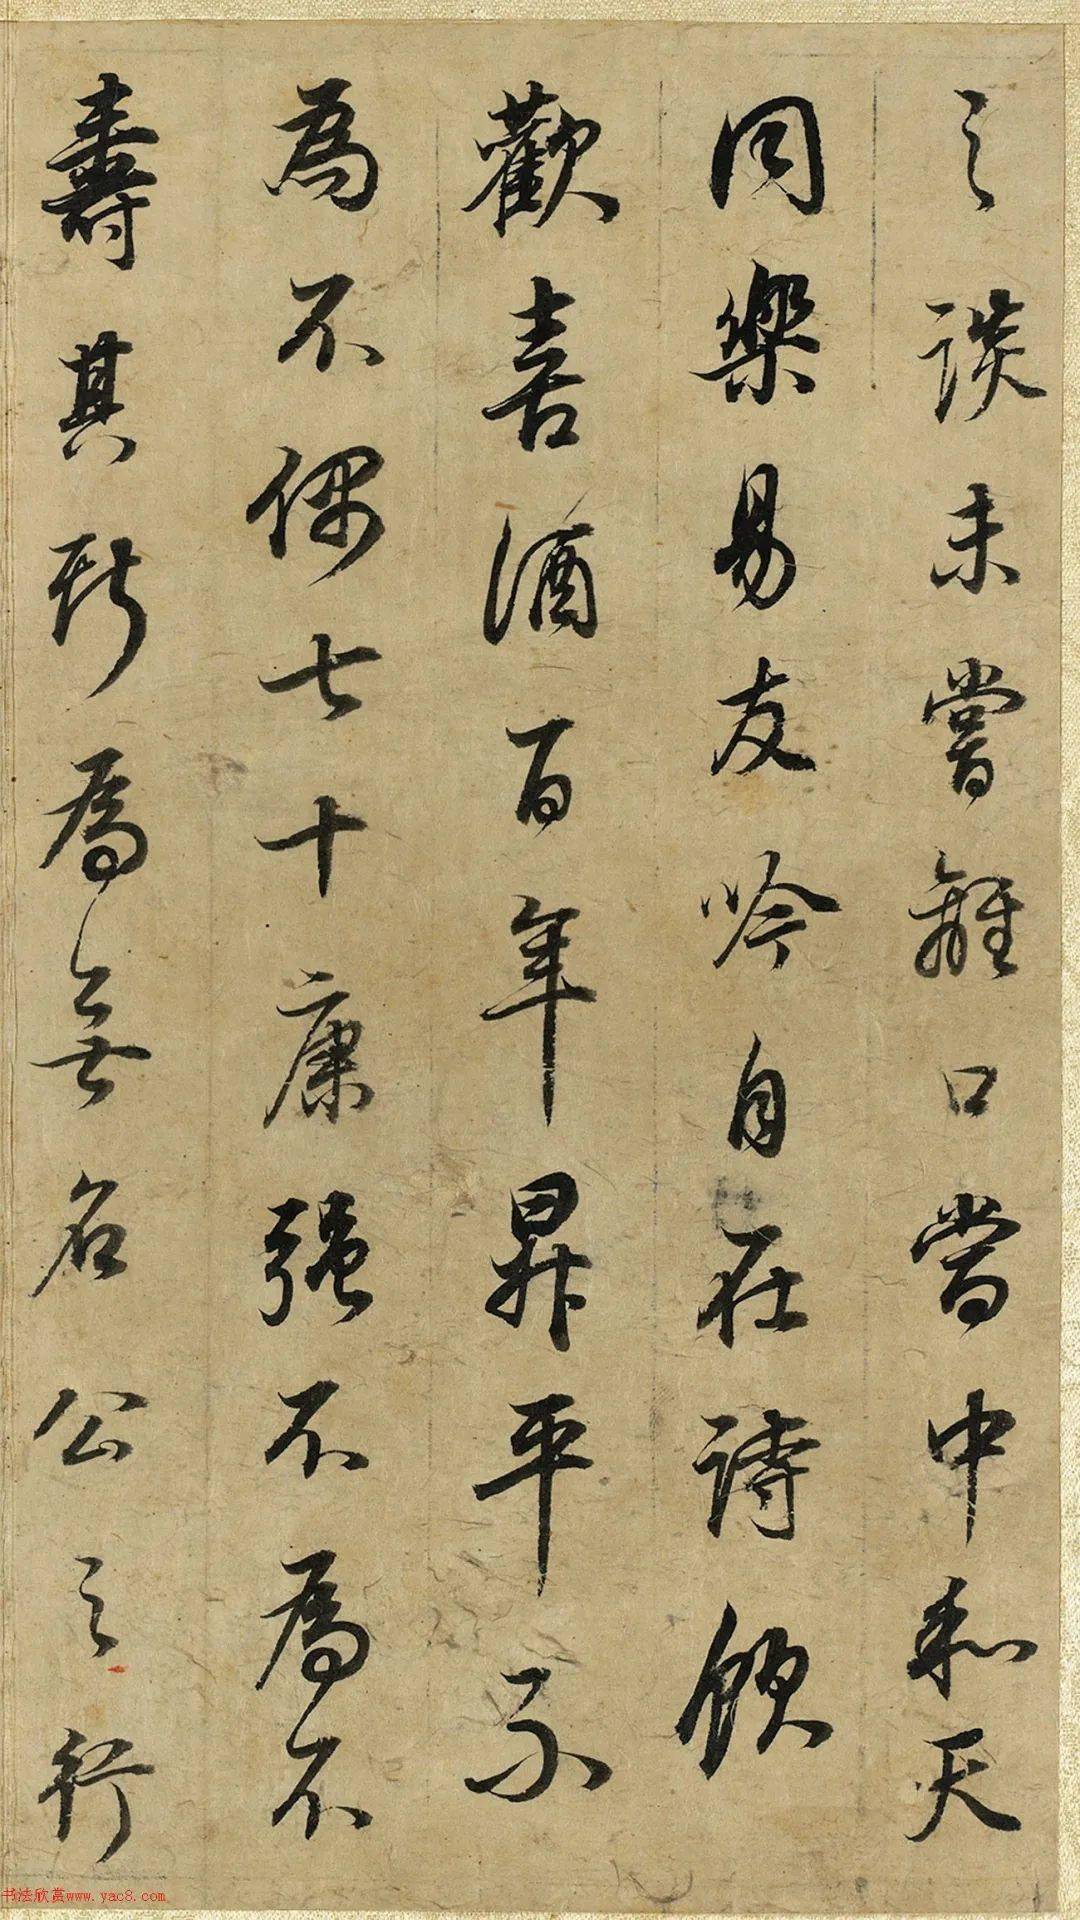 之談未嘗離口當中和天
同樂易友吟自在詩飲
歡喜酒百年昇平不
為不偶七十康强不為不
壽其斯為無名公之行
书法欣赏www.yac8.com